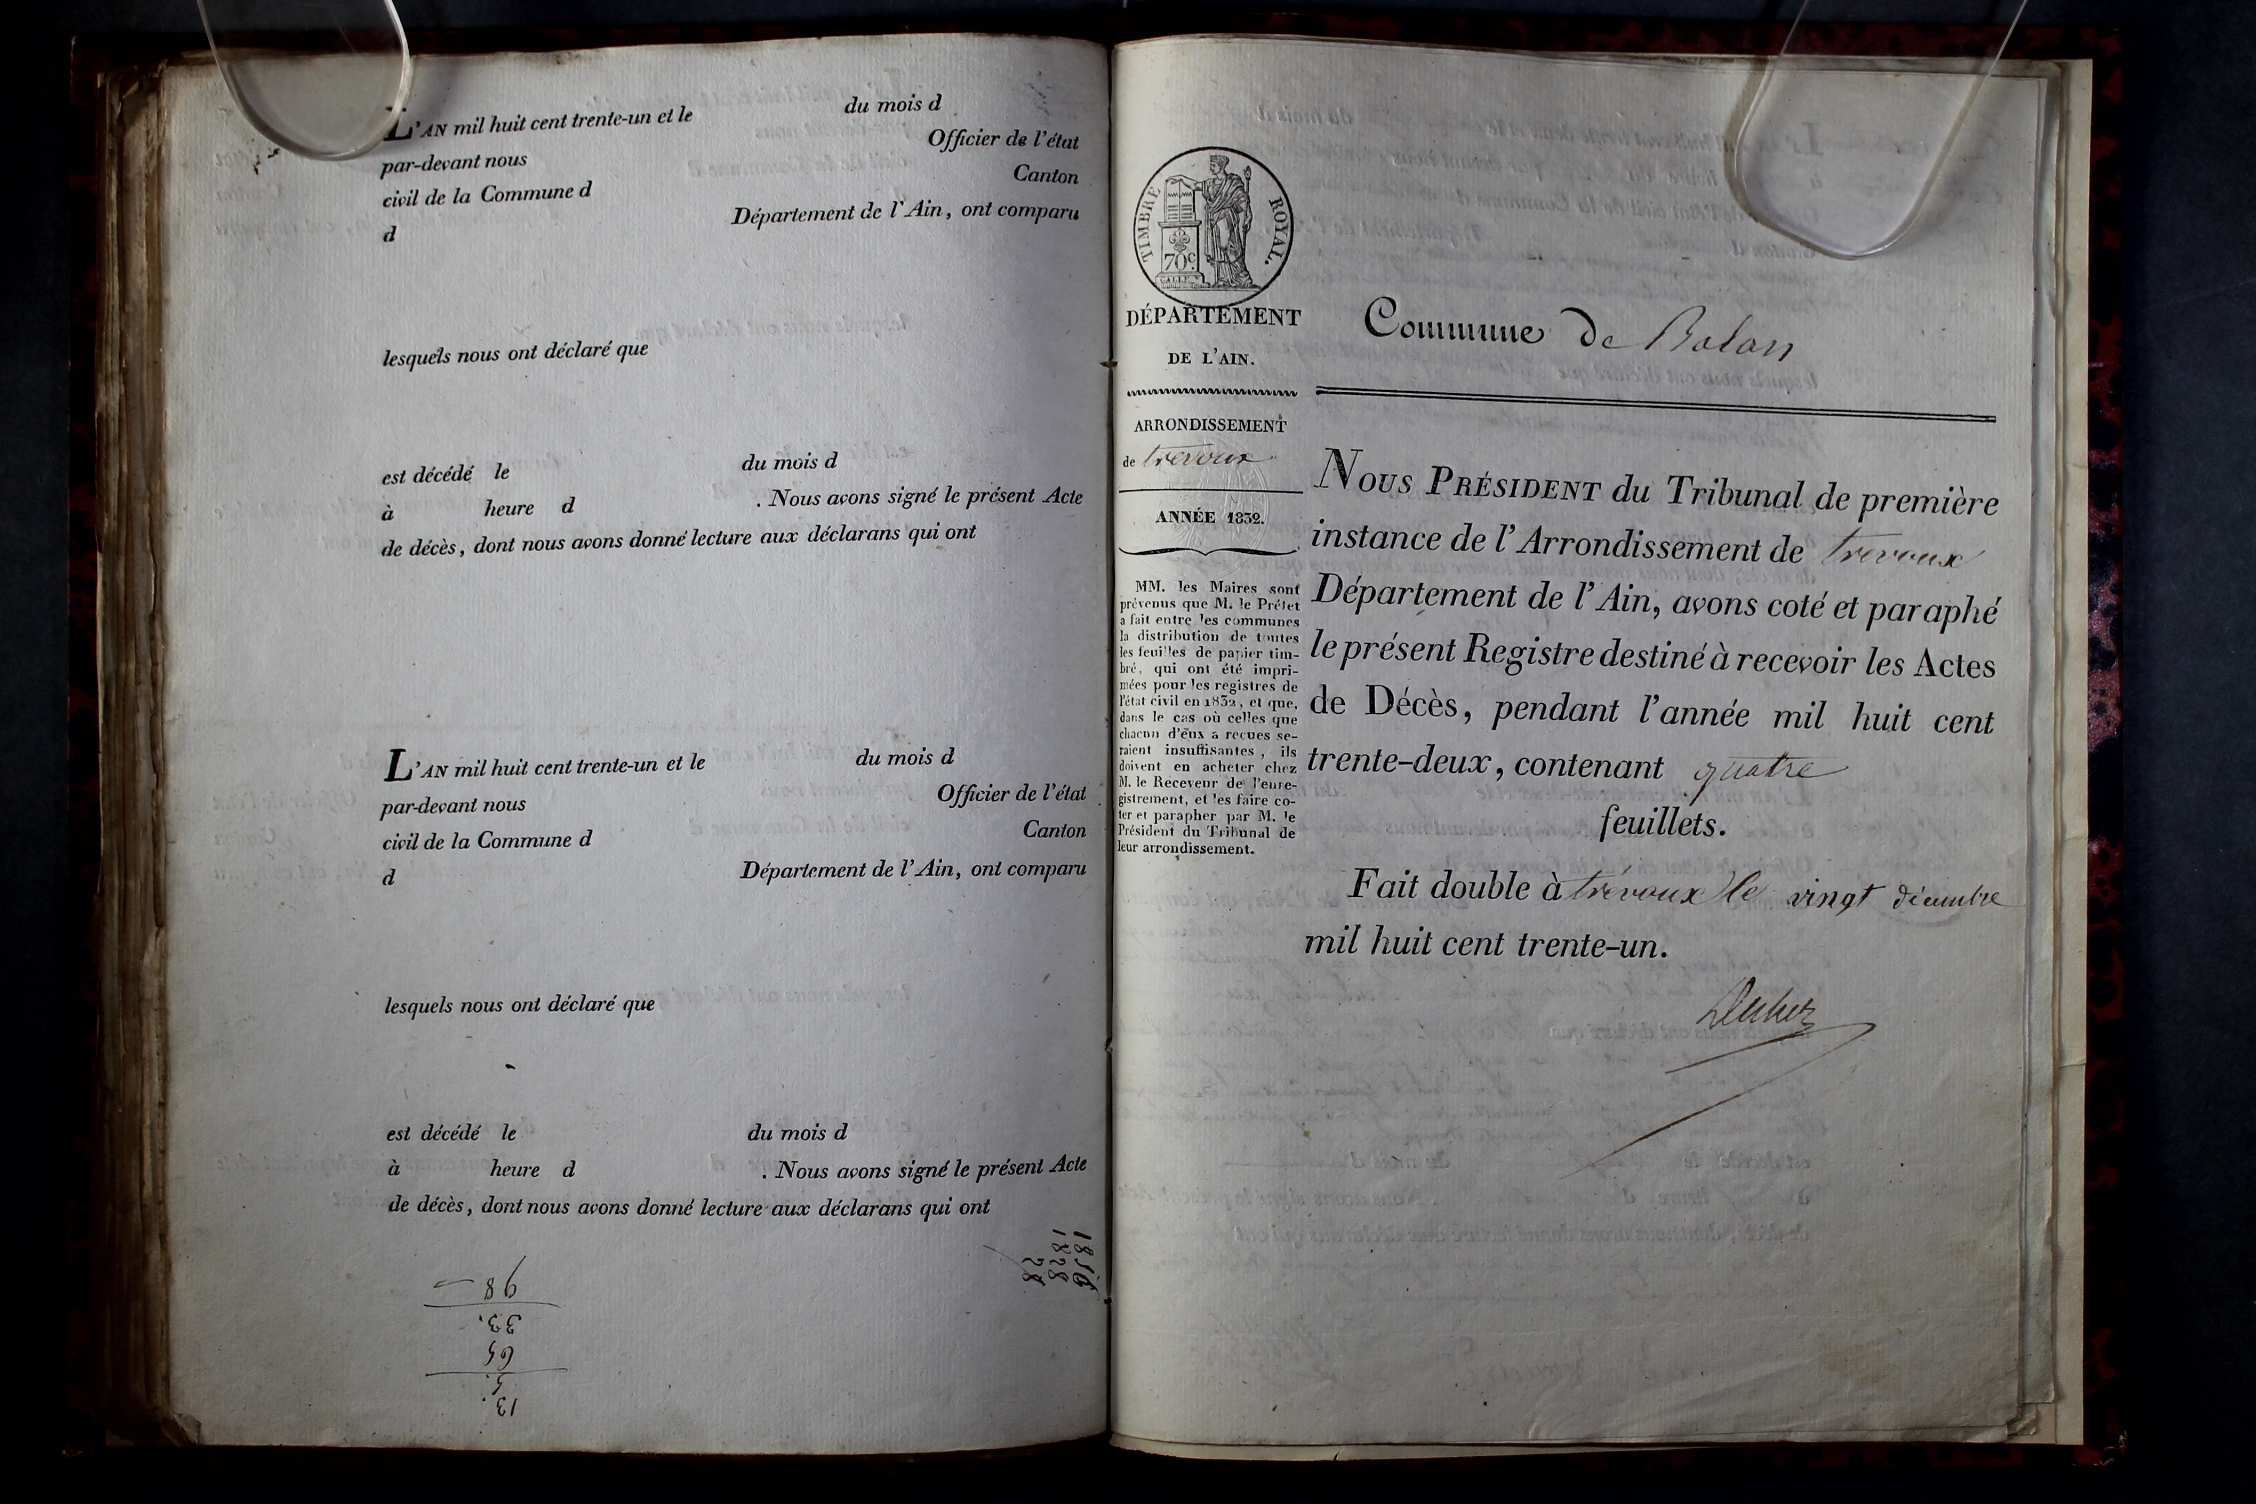 L'AN mil huit cent trente-un et le du mois d
par-devant nous Officier de l'état
civil de la Commune d Canton
d Département de l'Ain, ont comparu
lesquels nous ont déclaré que
est décédé le du mois d
à heure d . Nous avons signé le présent Acte
de décès, dont nous avons donné lecture aux déclarans qui ont
L'AN mil huit cent trente-un et le du mois d
par-devant nous Officier de l'état
civil de la Commune d Canton
d Département de l'Ain, ont comparu
lesquels nous ont déclaré que
est décédé le du mois d
à heure d . Nous avons signé le présent Acte
de décès, dont nous avons donné lecture aux déclarans qui ont
1828
28
13
33
98
TIMBRE ROYAL.
70c
DÉPARTEMENT
DE L'AIN.
ARRONDISSEMENT
de trevoux
ANNÉE 1832.
MM. les Maires sont
prévenus que M. le Préfet
a fait entre les communes
la distribution de toutes
les feuilles de papier tim-
bré, qui ont été impri-
mées pour les registres de
l'état civil en 1832, et que,
dans le cas où celles que
chacun d'eux a reçues se-
raient insuffisantes, ils
doivent en acheter chez
M. le Receveur de l'enre-
gistrement, et les faire co-
ter et parapher par M. le
Président du Tribunal de
leur arrondissement.
Commune de Balan
NOUS PRÉSIDENT du Tribunal de première
instance de l'Arrondissement de trevoux
Département de l'Ain, avons coté et paraphé
le présent Registre destiné à recevoir les Actes
de Décès, pendant l'année mil huit cent
trente-deux, contenant quatre
feuillets.
Fait double à trévoux le vingt décembre
mil huit cent trente-un.